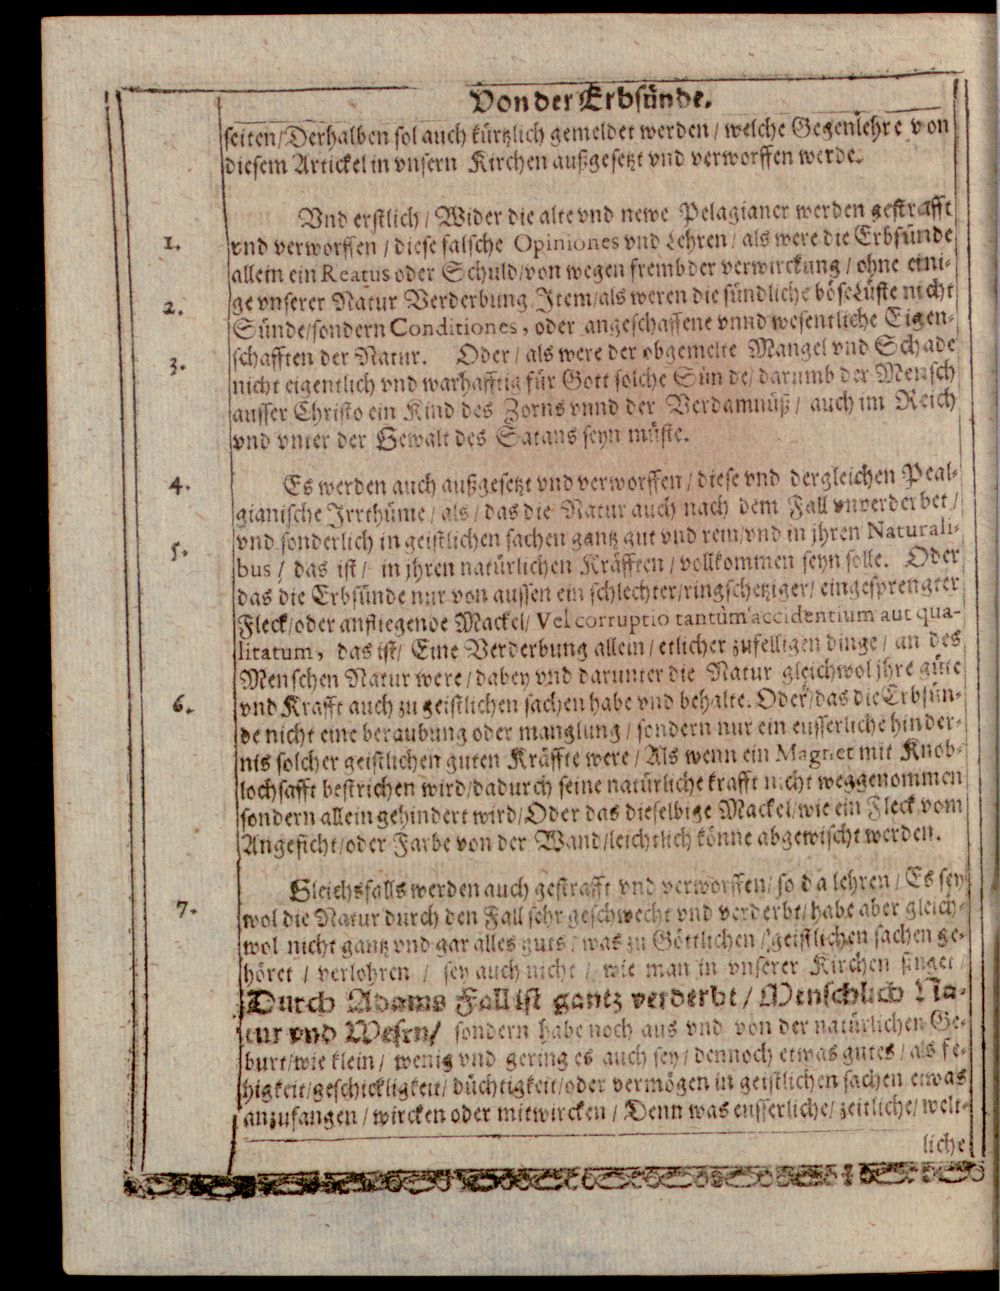 Von der Erbsünde.
seiten/Derhalben sol auch kürtzlich gemeldet werden/ welche Gegenlehre von
diesem Artickel in vnsern Kirchen außgesetzt vnd verworffen werde.
Vnd erstlich/ Wider die alte vnd newe Pelagianer werden gestrafft
1. vnd verworffen/ diese falsche Opiniones vnd Lehren/ als were die Erbsünde
allein ein Reatus oder Schuld/von wegen frembder verwirckung/ ohne eini-
2. ge vnserer Natur Verderbung. Item/als weren die sündliche böse Lüste nicht
Sünde/sondern Conditiones, oder angeschaffene vnnd wesentliche Eigen-
3. schafften der Natur. Oder/ als were der obgemelte Mangel vnd Schade
nicht eigentlich vnd warhafftig für Gott solche Sünde/ darumb der Mensch
ausser Christo ein Kind des Zorns vnnd der Verdamnüß/ auch im Reich
vnd vnter der Gewalt des Satans seyn müste.
4. Es werden auch außgesetzt vnd verworffen/ diese vnd dergleichen Peal-
gianische Irrthüme/ als/ das die Natur auch nach dem Fall vnverderbet/
vnd sonderlich in geistlichen sachen gantz gut vnd rein/vnd in jhren Naturali-
5. bus/ das ist/ in jhren natürlichen Kräfften/ vollkommen seyn solle. Oder
das die Erbsünde nur von aussen ein schlechter/ringschetziger/ eingesprengter
Fleck/oder anfliegende Mackel/ Vel corruptio tantùm accidentium aut qua-
litatum, das ist/ Eine Verderbung allein/ etlicher zufelligen dinge/ an des
Menschen Natur were/ dabey vnd darunter die Natur gleichwol jhre güte
6. vnd Krafft auch zu geistlichen sachen habe vnd behalte. Oder/das die Erbsün-
de nicht eine beraubung oder manglung/ sondern nur ein eusserliche hinder-
nis solcher geistlichen guten Kräffte were/ Als wenn ein Magnet mit Knob-
lochsafft bestrichen wird/dadurch seine natürliche krafft nicht weggenommen
sondern allein gehindert wird/Oder das dieselbige Mackel/wie ein Fleck vom
Angesicht/oder Farbe von der Wand/leichtlich könne abgewischt werden.
Gleichsfalls werden auch gestrafft vnd verworffen/ so da lehren/ Es sey
7. wol die Natur durch den Fall sehr geschwecht vnd verderbt/ habe aber gleich-
wol nicht gantz vnd gar alles guts/ was zu Göttlichen/ geistlichen sachen ge-
höret/ verlohren/ sey auch nicht/ wie man in vnserer Kirchen singet/
Durch Adams Fall ist gantz verderbt/ Menschlich Na-
tur vnd Wesen/ sondern habe noch aus vnd von der natürlichen Ge-
burt/wie klein/ wenig vnd gering es auch sey/ dennoch etwas gutes/ als fe-
higkeit/geschickligkeit/ düchtigkeit/oder vermögen in geistlichen sachen etwas
anzufangen/ wircken oder mitwircken/ Denn was eusserliche/ zeitliche/ welt-
liche